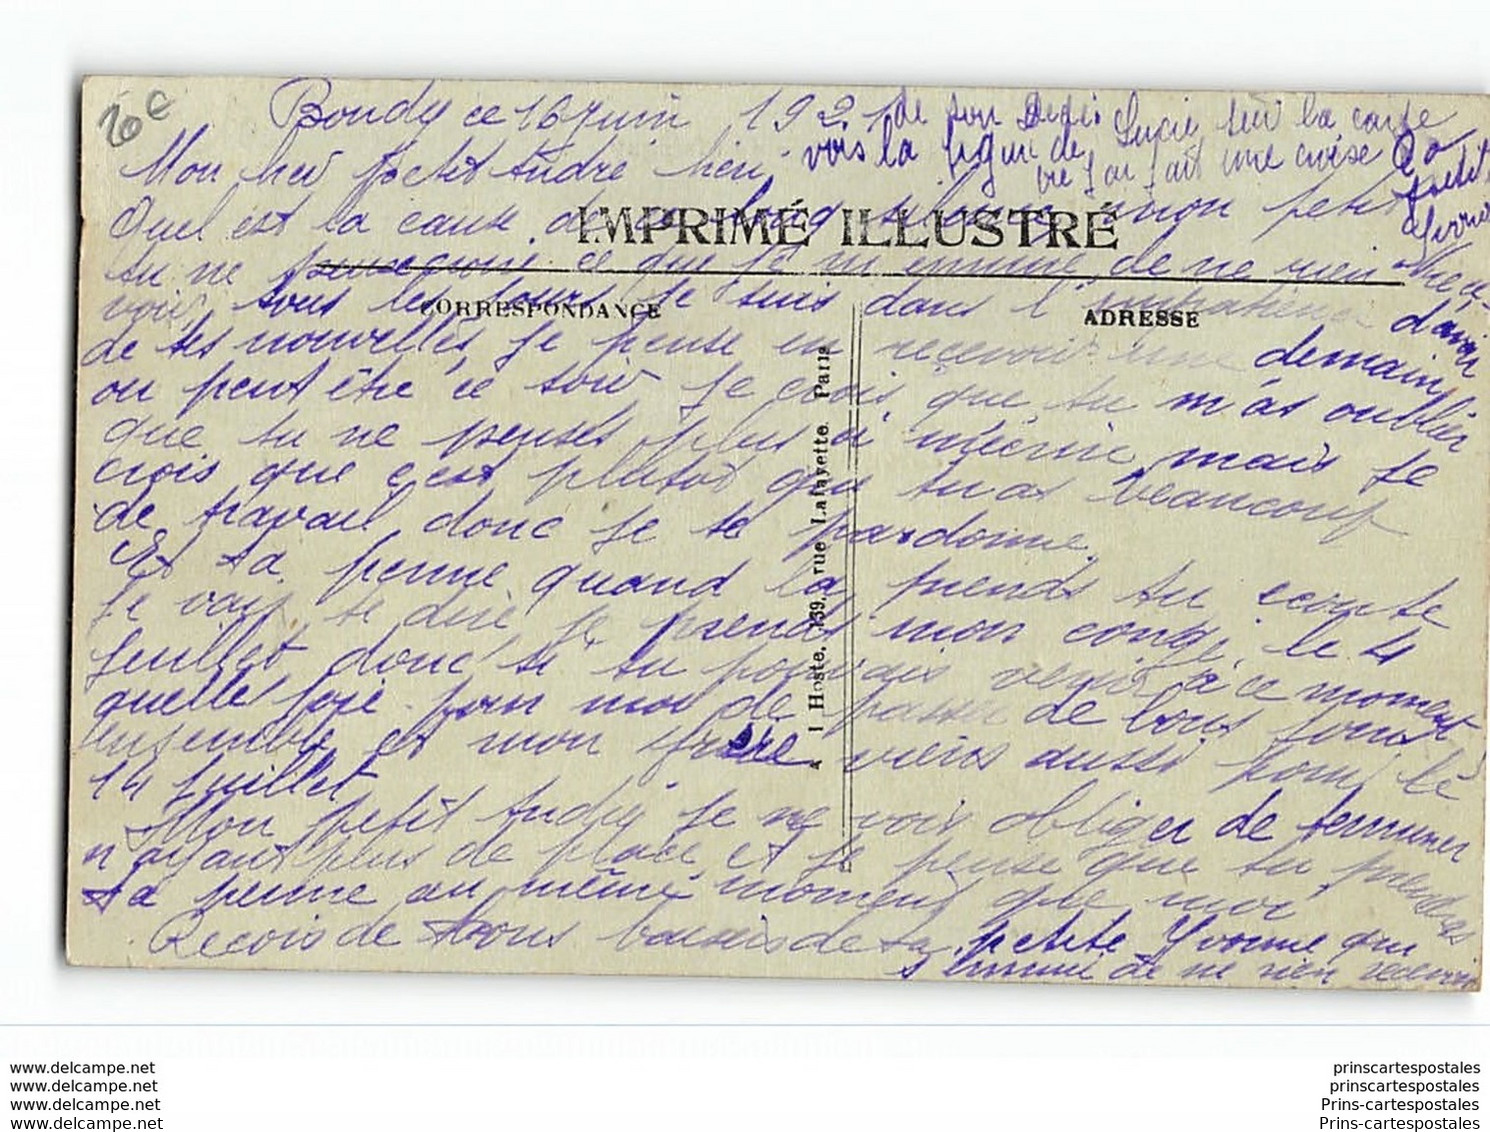 20c
Bondy ce 16 Juin 1921
de son Dédé Lucie sur la carte
vois la figure de
ou j'ai fait une croise
petit
Mon cher petit André chéri
IMPRIMÉ ILLUSTRÉ
Quel est la cause de ce long silence mon petit
tu ne ce que je m'ennuie de ne rien
CORRESPONDANCE
ADRESSE
voir, tous les jours je suis dans l'impatience d'avoir
de tes nouvelles, je pense en recevoir une demain
ou peut être ce soir je crois que tu m'as oublier
que tu ne penses plus à m'écrire mais je
crois que c'est plutot que tu as beaucoup
de travail donc je te pardonne.
Et ta perme quand la prends tu ecoute
je vais te dire je prends mon congé le 4
juillet donc si tu pouvais venir à ce moment
quelle joie pour moi de passer de bons jours
ensemble et mon frère viens aussi pour le
14 Juillet
Mon petit André je me vois obliger de terminer
n'ayant plus de place et je pense que tu prendras
ta perme au même moment que moi
Recois de bons baisers de ta petite Yvonne qui
s'ennuie de ne rien recevoir
I Hoste, 139, rue Lafayette, Paris
www.delcampe.net
www.delcampe.net
www.delcampe.net
www.delcampe.net
prinscartespostales
prinscartespostales
Prins-cartespostales
Prins-cartespostales